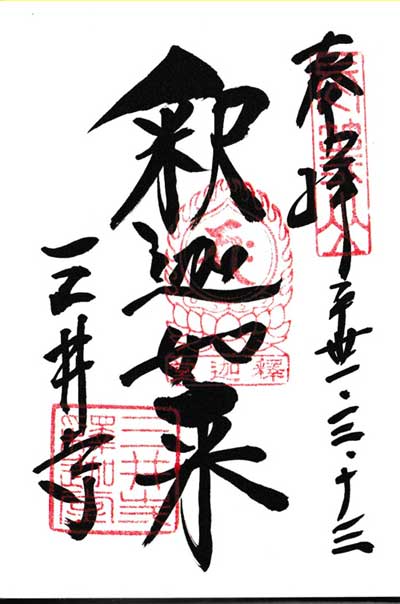 奉拝 平卅一・三・十三
釈迦如来
三井寺
三井寺
釋迦堂